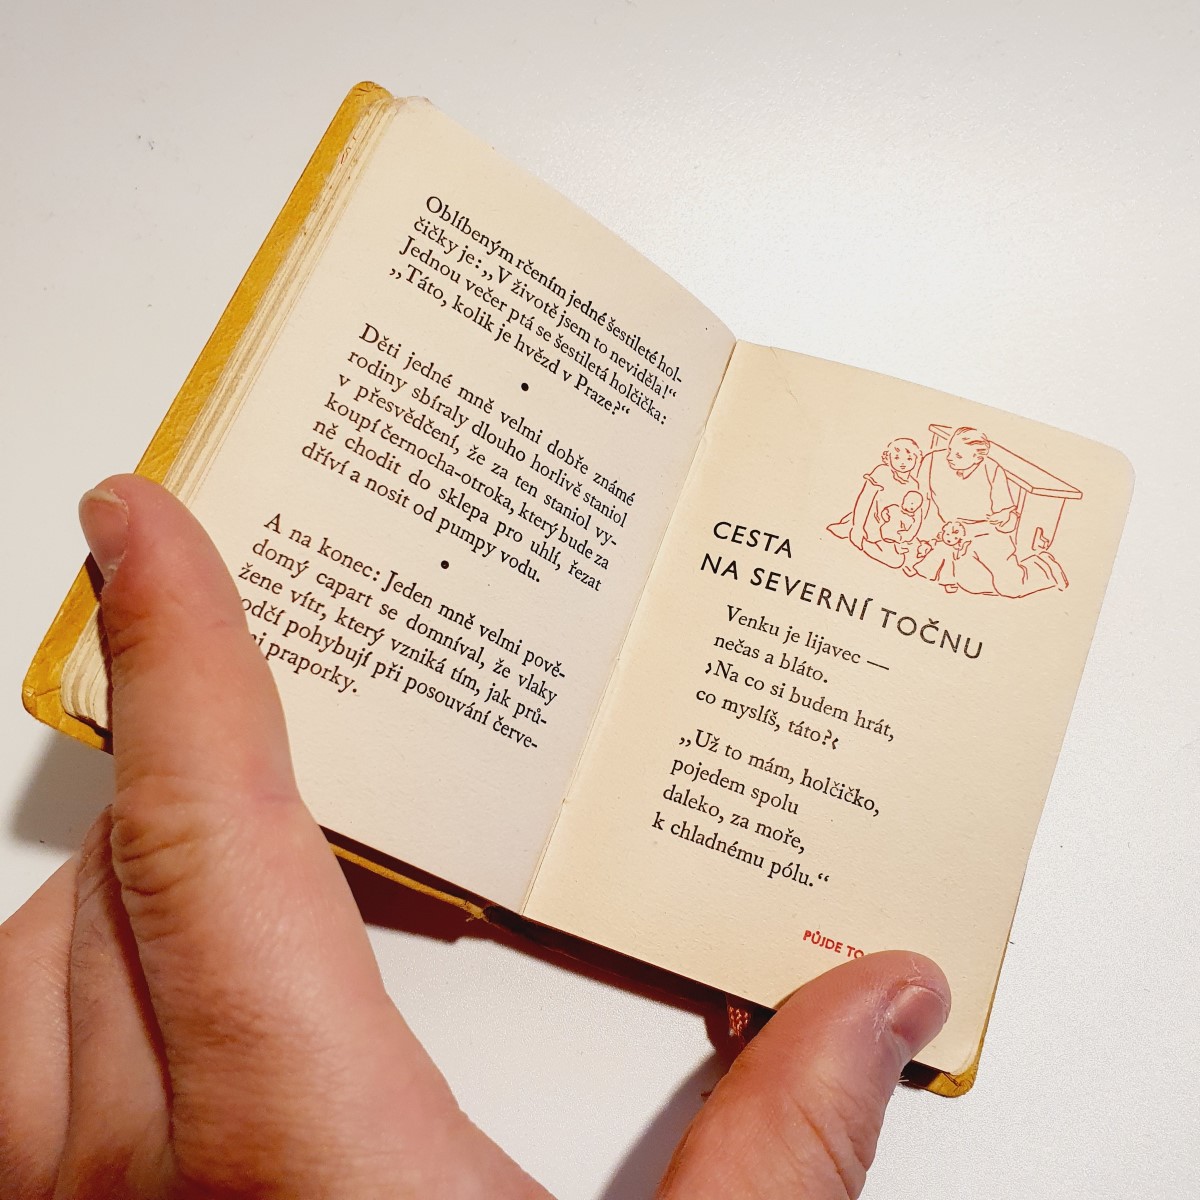 Oblíbeným rčením jedné šestileté hol-
čičky je: „V životě jsem to neviděla!“
Jednou večer ptá se šestiletá holčička:
„Táto, kolik je hvězd v Praze?“
•
Děti jedné mně velmi dobře známé
rodiny sbíraly dlouho horlivě staniol
v přesvědčení, že za ten staniol vy-
koupí černocha-otroka, který bude za
ně chodit do sklepa pro uhlí, řezat
dříví a nosit od pumpy vodu.
•
A na konec: Jeden mně velmi pově-
domý capart se domníval, že vlaky
žene vítr, který vzniká tím, jak prů-
odčí pohybují při posouvání červe-
praporky.
CESTA
NA SEVERNÍ TOČNU
Venku je lijavec —
nečas a bláto.
›Na co si budem hrát,
co myslíš, táto?‹
„Už to mám, holčičko,
pojedem spolu
daleko, za moře,
k chladnému pólu.“
PŮJDE TO